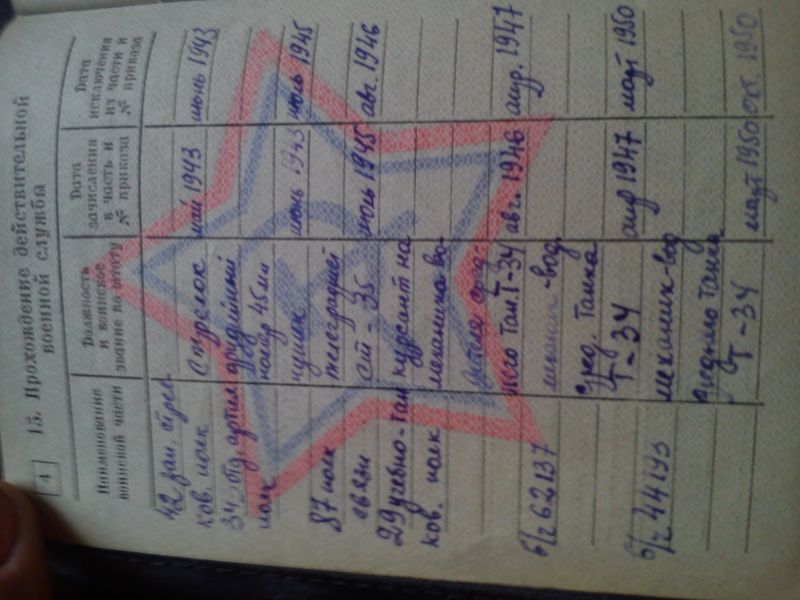 4
13. Прохождение действительной
военной службы
Наименование
воинской части
Должность
и воинское
звание по штату
Дата
зачисления
в часть и
№ приказа
Дата
исключения
из части и
№ приказа
42 зап. стрел
ков. полк
Стрелок
май 1943
июнь 1943
34
артил
полк
орудийный
номер 45 мм
пушек
июнь 1943
июль 1945
87 полк
связи
телеграфист
ст - 35
июль 1945
авг. 1946
29 учебно-тан
ков. полк
курсант на
механика во-
дителя сред-
него тан. Т-34
авг. 1946
апр. 1947
в/ч 62137
механик-вод.
сред. танка
Т-34
апр 1947
март 1950
в/ч 44193
механик-вод
среднего танка
Т-34
март 1950
окт. 1950